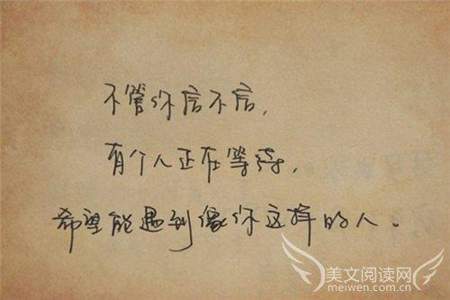 不管你信不信，
有个人正在等待，
希望能遇到像你这样的人。
美文阅读网
meiwen.com.cn